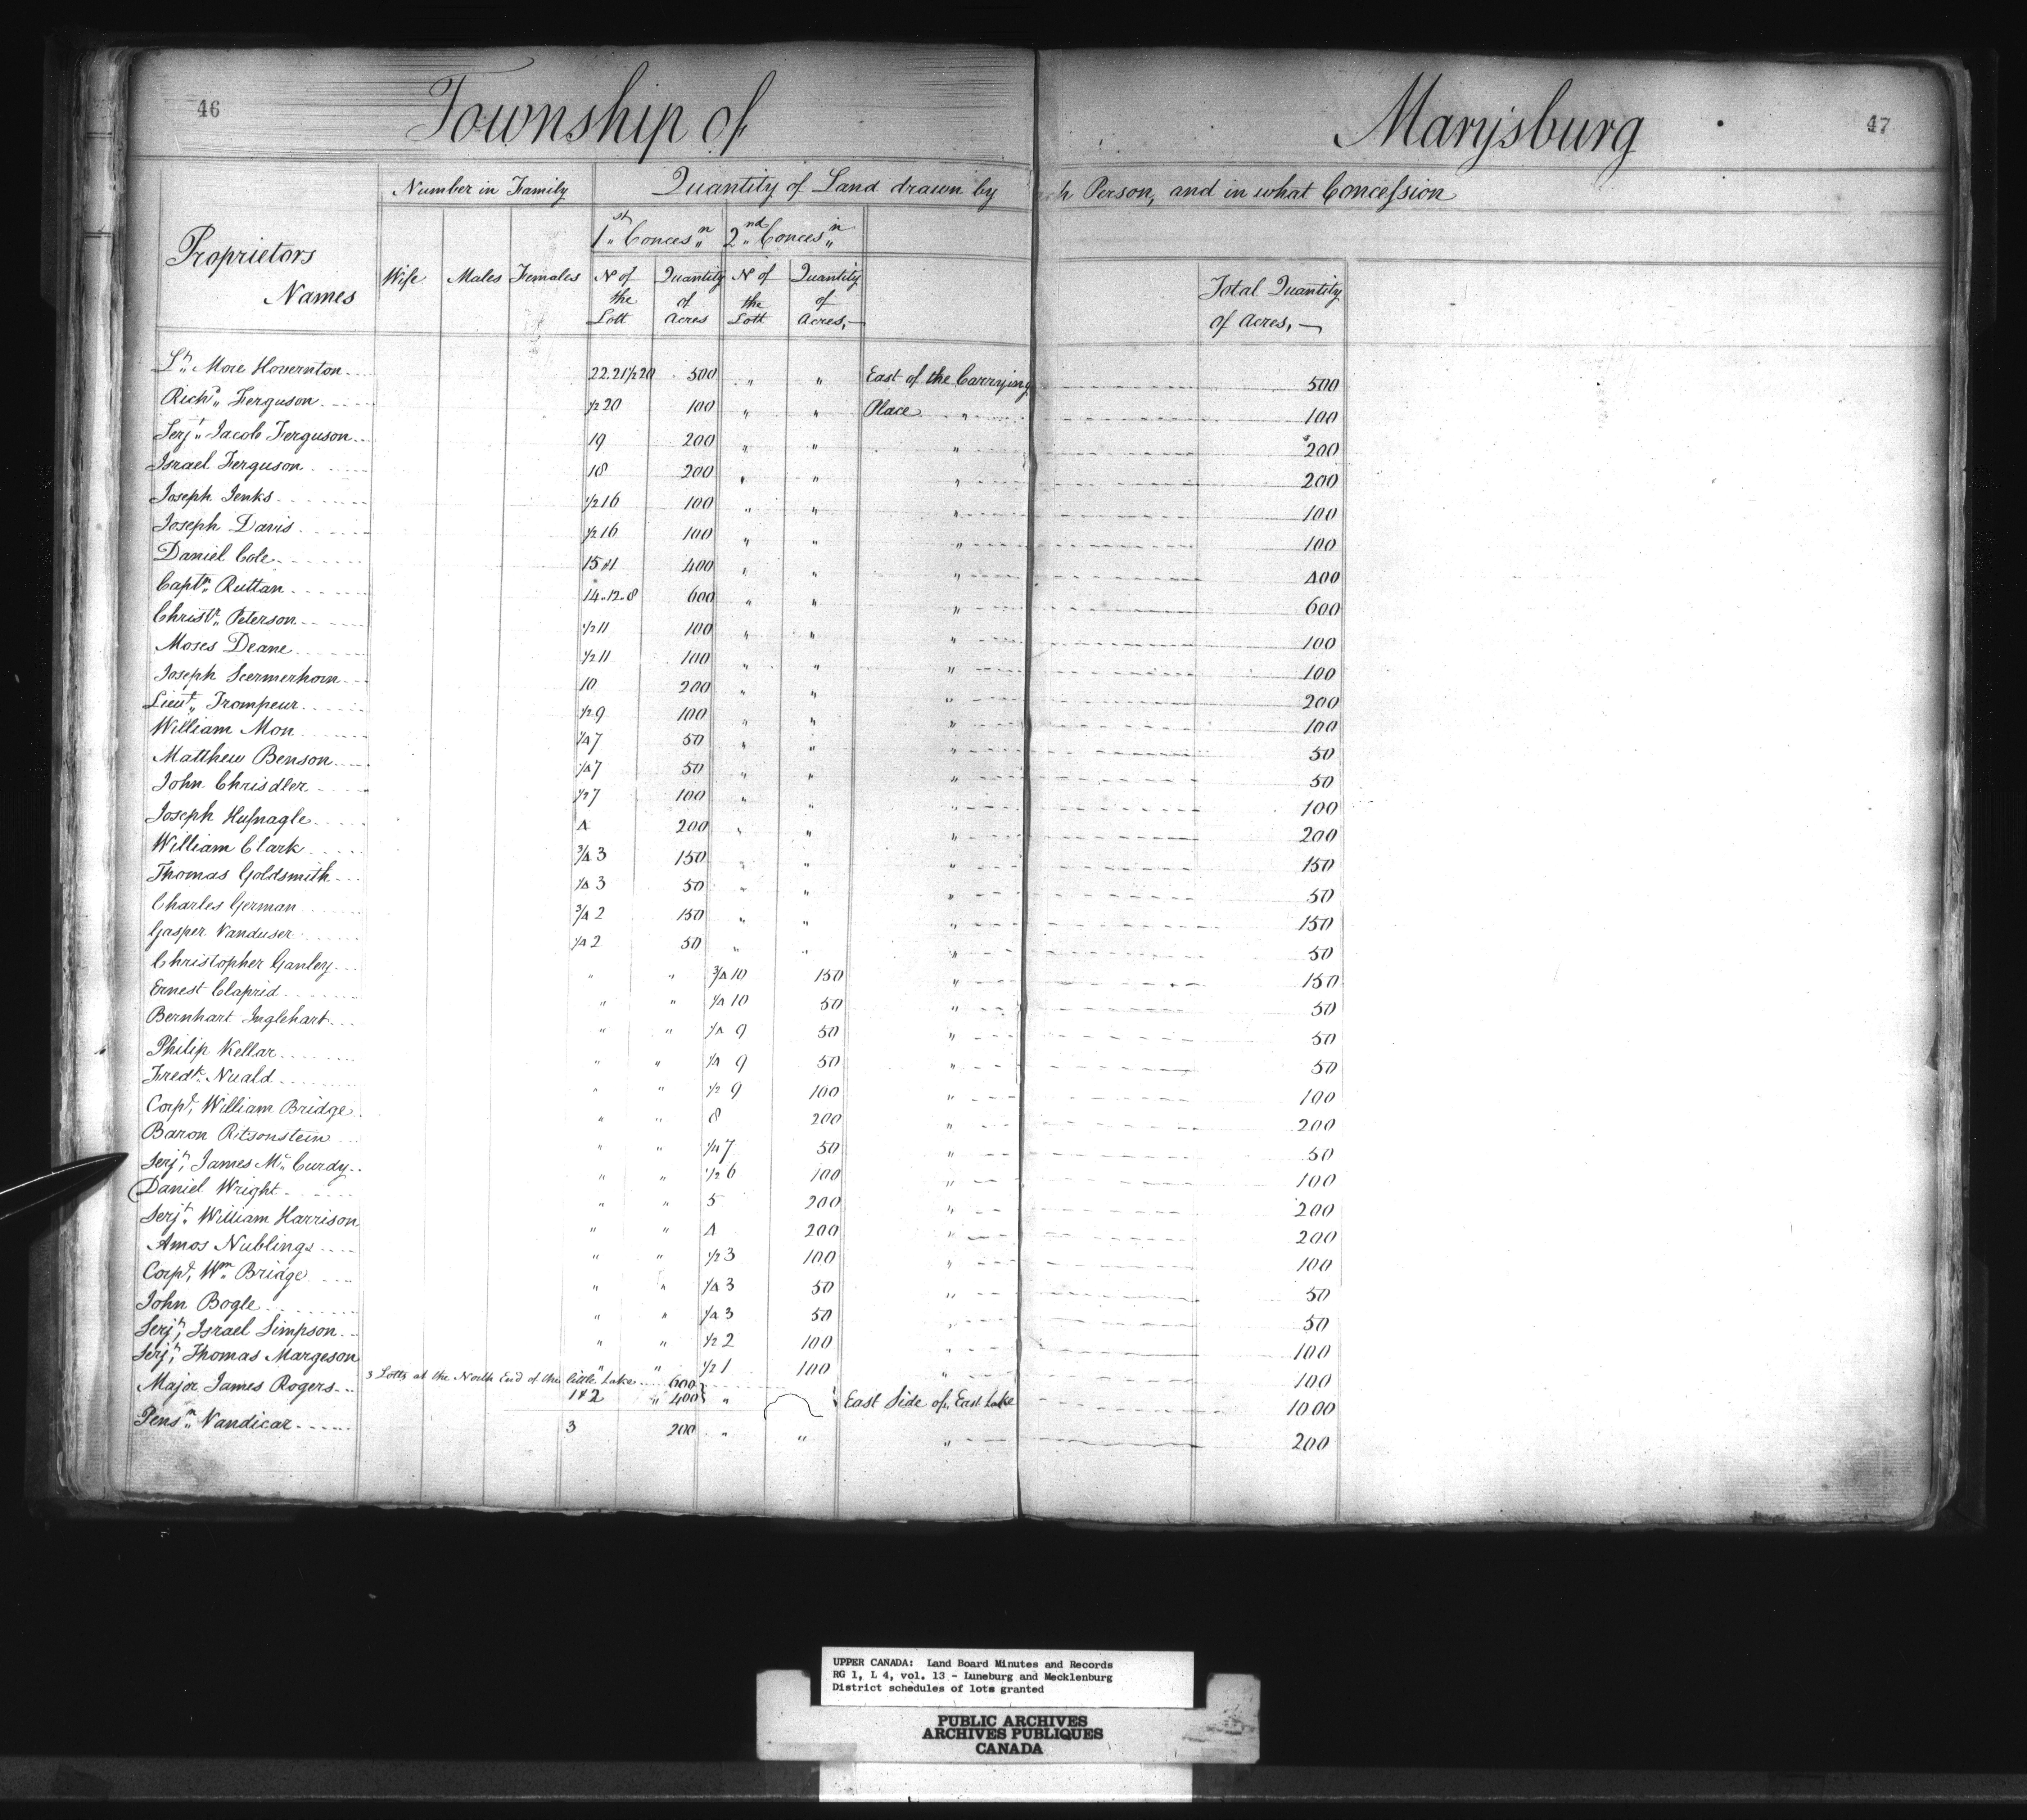 46
Township of Marysburg
47
Number in Family
Quantity of Land drawn by h Person, and in what Concession
Proprietors Names
1st Concesn 2nd Concesn
Wife Males Females No of the Lott Quantity of Acres No of the Lott Quantity of Acres,— Total Quantity of Acres,—
Lt. More Hovernton 22.21½20 500 " " East of the Carrying 500
Richd. Ferguson ½20 100 " " Place " 100
Serjt. Jacob Ferguson 19 200 " " " 200
Israel Ferguson 18 200 " " " 200
Joseph Jenks ½16 100 " " " 100
Joseph Davis ½16 100 " " " 100
Daniel Cole 15 & 1 400 " " " 400
Captn. Ruttan 14..12..8 600 " " " 600
Christr. Peterson ½11 100 " " " 100
Moses Deane ½11 100 " " " 100
Joseph Scermerhorn 10 200 " " " 200
Lieut. Trompeur ½9 100 " " " 100
William Mon ¼7 50 " " " 50
Matthew Benson ¼7 50 " " " 50
John Chrisdler ½7 100 " " " 100
Joseph Hufnagle 4 200 " " " 200
William Clark ¾3 150 " " " 150
Thomas Goldsmith ¼3 50 " " " 50
Charles German ¾2 150 " " " 150
Gasper Vanduser ¼2 50 " " " 50
Christopher Ganley " " ¾10 150 " 150
Ernest Claprid " " ¼10 50 " 50
Bernhart Inglehart " " ¼9 50 " 50
Philip Kellar " " ¼9 50 " 50
Fredk. Nuald " " ½9 100 " 100
Corpl. William Bridge " " 8 200 " 200
Baron Ritsonstein " " ¼7 50 " 50
Serjt. James Mc.Curdy " " ½6 100 " 100
Daniel Wright " " 5 200 " 200
Serjt. William Harrison " " 4 200 " 200
Amos Nublings " " ½3 100 " 100
Corpl. Wm. Bridge " " ¼3 50 " 50
John Bogle " " ¼3 50 " 50
Serjt. Israel Simpson " " ½2 100 " 100
Serjt. Thomas Margeson " " ½1 100 " 100
3 Lotts at the North End of the little Lake 600
Major James Rogers 1&2 " 400 " East Side of East Lake 1000
Pensn. Vandicar 3 200 " " " 200
UPPER CANADA: Land Board Minutes and Records
RG 1, L 4, vol. 13 - Luneburg and Mecklenburg
District schedules of lots granted
PUBLIC ARCHIVES
ARCHIVES PUBLIQUES
CANADA